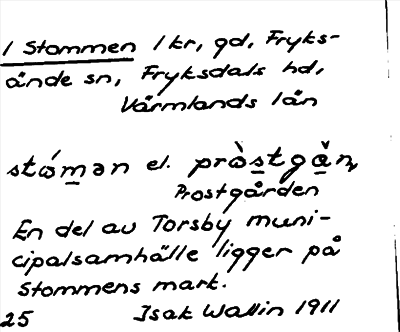 1 Stommen 1 kr, gd, Fryks-
ände sn, Fryksdals hd,
Värmlands län
stώmən el. prὸstgǎn,
Prostgården
En del av Torsby muni-
cipalsamhälle ligger på
Stommens mark.
25 Isak Wallin 1911